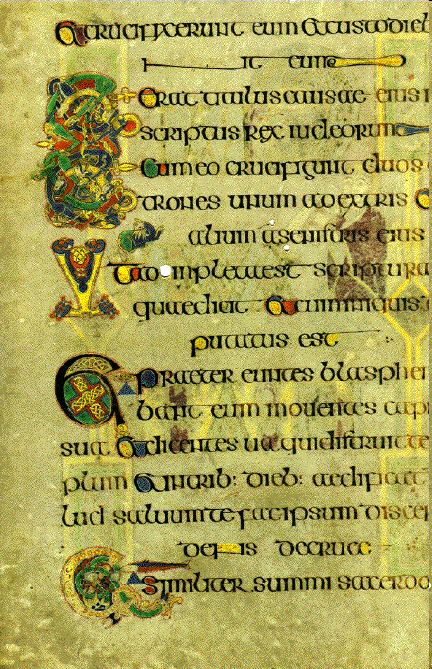 Et crucifixerunt eum Et custodieb
eum
Erat titulus causae eius i
scriptus rex iudeorum
Et cum eo crucifigunt duos
trones unum a dextris Et
alium a senistris eius
inpleta est scriptura
quae dicit Et cum iniquis
putatus est
Et praeter euntes blasphe
bant eum mouentes capi
sua Et dicentes ua qui distruit te
plum Et in trib: dieb: aedificat
lud saluum te fac ipsum discen
de cruce
Similiter summi sacerdo